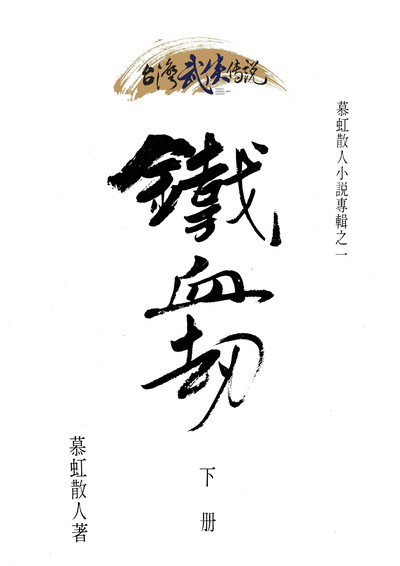 台灣武俠传説
慕虹散人小説專輯之一
鐵血劫
下册
慕虹散人著